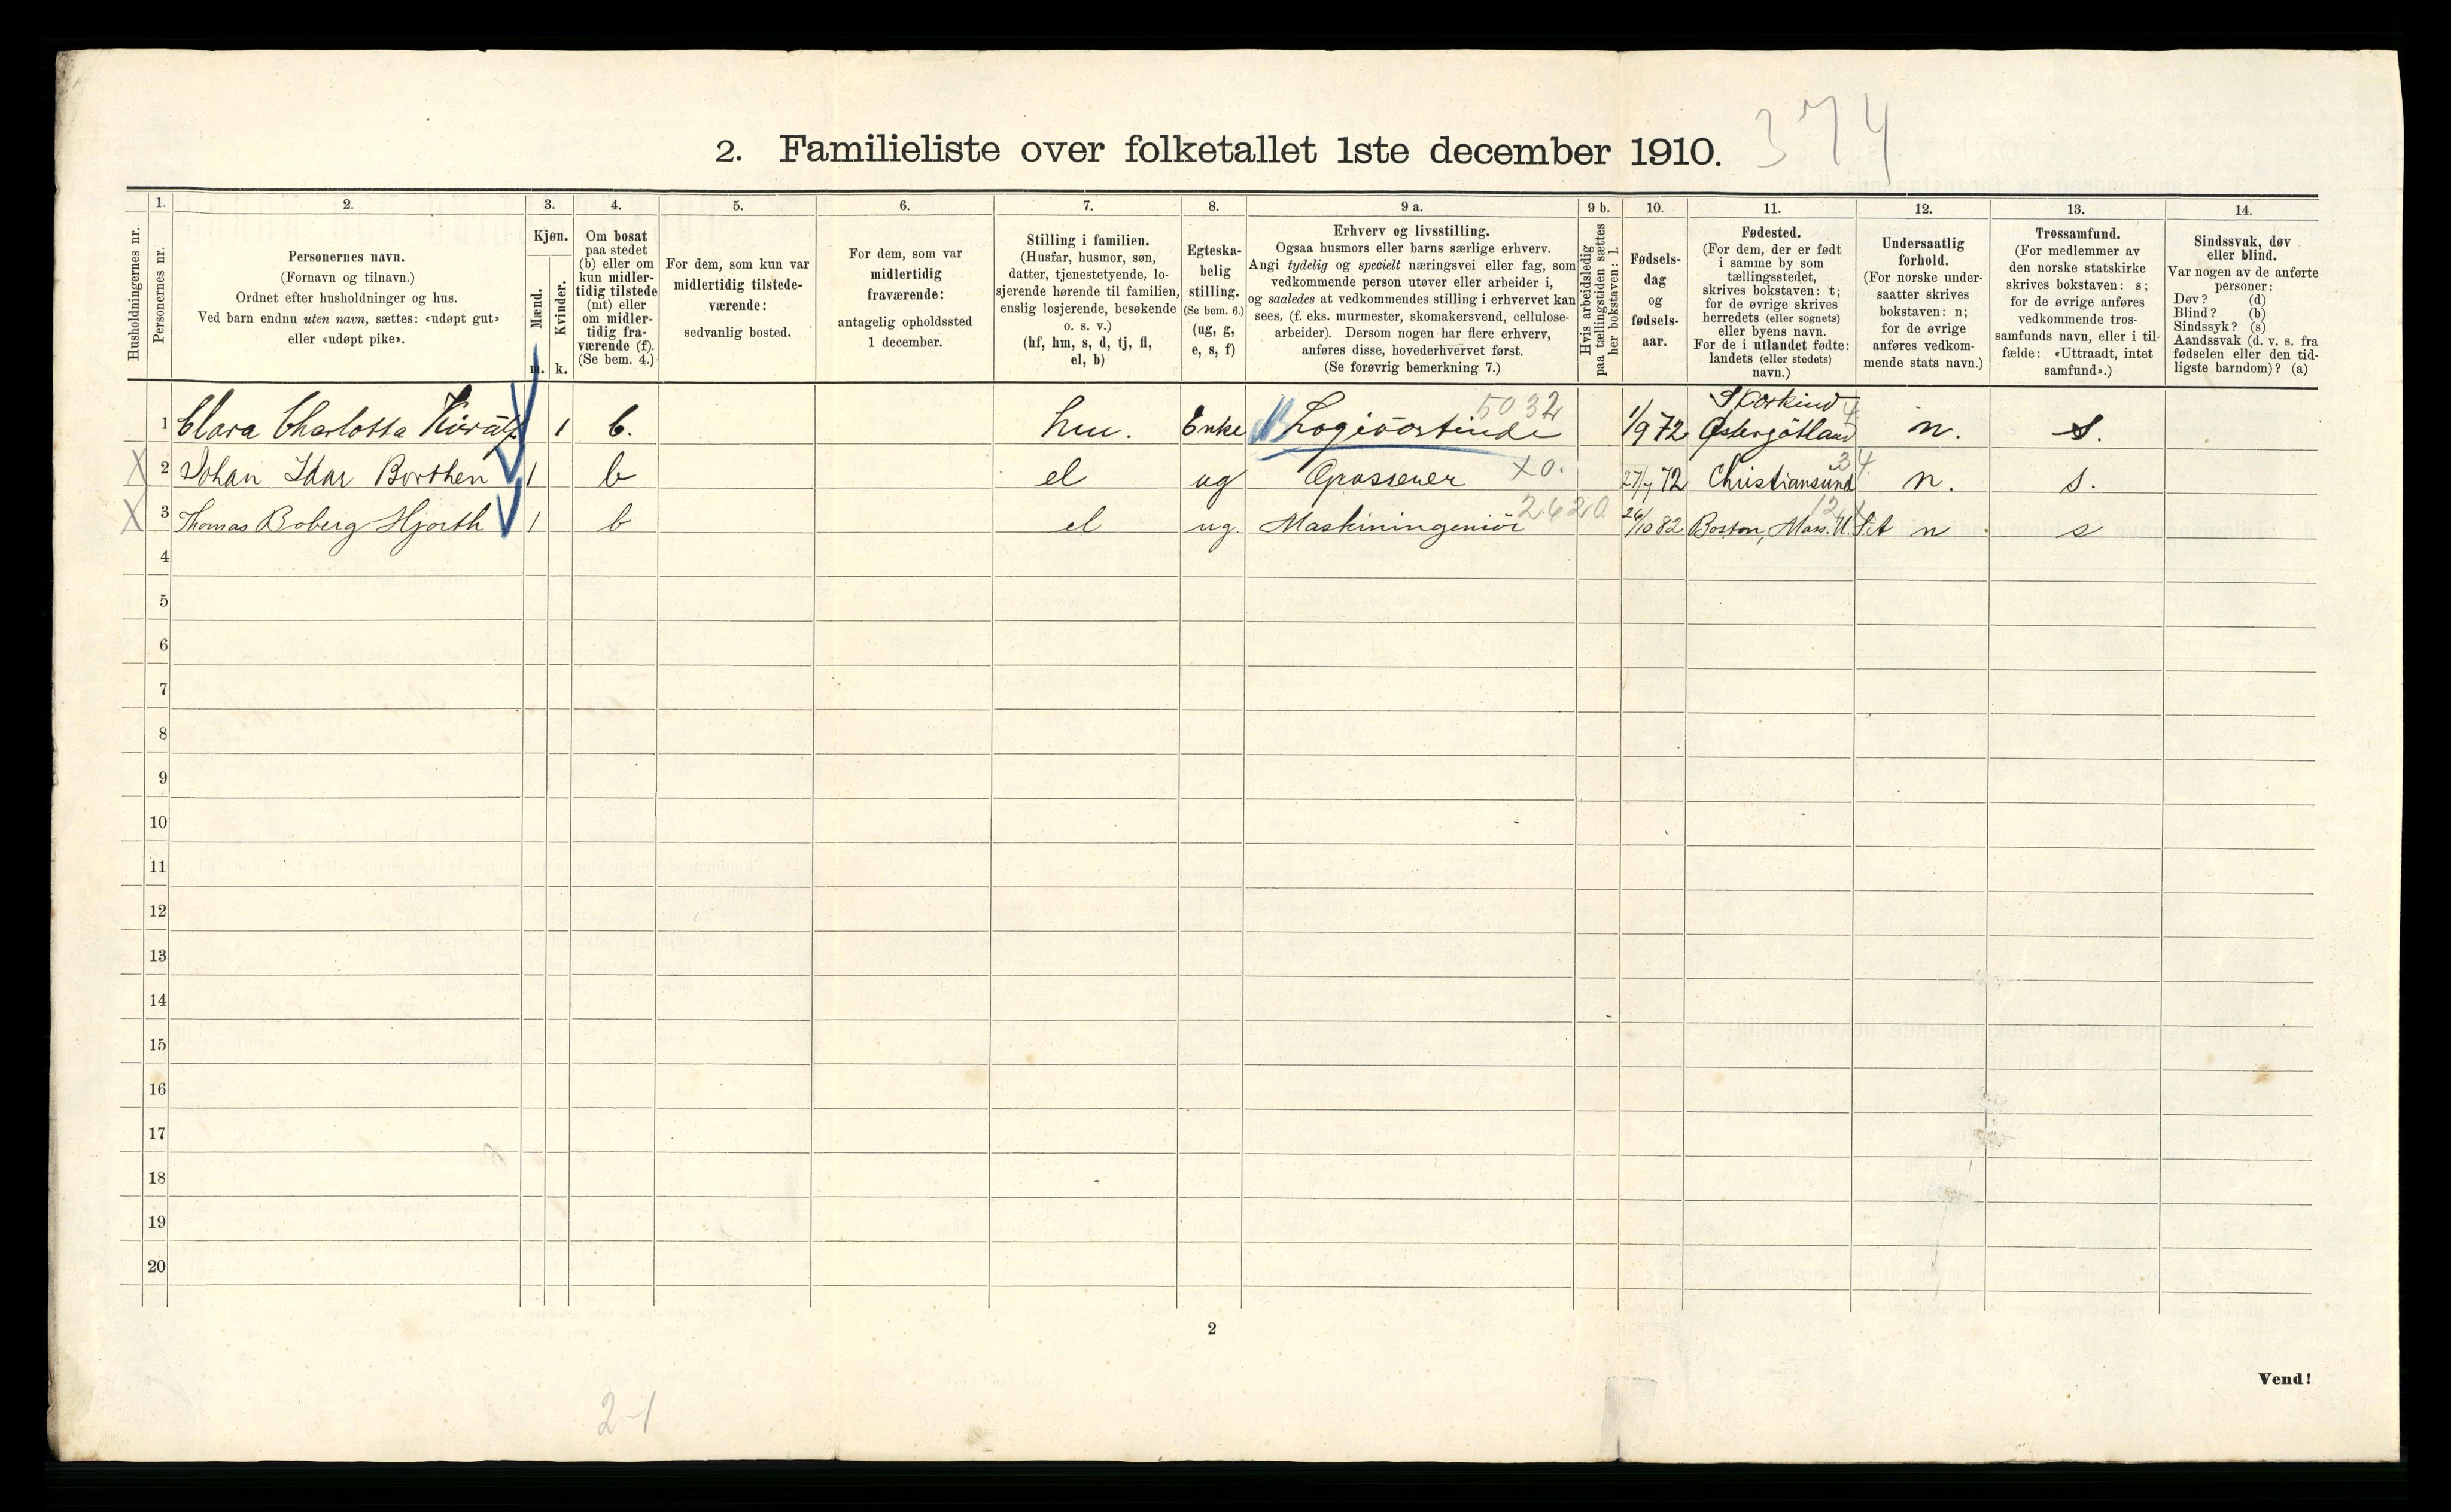 374
2. Familieliste over folketallet 1ste december 1910.
1. 2. 3. 4. 5. 6. 7. 8. 9 a. 9 b. 10. 11. 12. 13. 14.
Husholdningernes nr.
Personernes nr.
Personernes navn.
(Fornavn og tilnavn.)
Ordnet efter husholdninger og hus.
Ved barn endnu uten navn, sættes: «udøpt gut»
eller «udøpt pike».
Kjøn.
Mænd.
Kvinder.
m. k.
Om bosat
paa stedet
(b) eller om
kun midler-
tidig tilstede
(mt) eller
om midler-
tidig fra-
værende (f).
(Se bem. 4.)
For dem, som kun var
midlertidig tilstede-
værende:
sedvanlig bosted.
For dem, som var
midlertidig
fraværende:
antagelig opholdssted
1 december.
Stilling i familien.
(Husfar, husmor, søn,
datter, tjenestetyende, lo-
sjerende hørende til familien,
enslig losjerende, besøkende
o. s. v.)
(hf, hm, s, d, tj, fl,
el, b)
Egteska-
belig
stilling.
(Se bem. 6.)
(ug, g,
e, s, f)
Erhverv og livsstilling.
Ogsaa husmors eller barns særlige erhverv.
Angi tydelig og specielt næringsvei eller fag, som
vedkommende person utøver eller arbeider i,
og saaledes at vedkommendes stilling i erhvervet kan
sees, (f. eks. murmester, skomakersvend, cellulose-
arbeider). Dersom nogen har flere erhverv,
anføres disse, hovederhvervet først.
(Se forøvrig bemerkning 7.)
Hvis arbeidsledig
paa tællingstiden sættes
her bokstaven: l.
Fødsels-
dag
og
fødsels-
aar.
Fødested.
(For dem, der er født
i samme by som
tællingsstedet,
skrives bokstaven: t;
for de øvrige skrives
herredets (eller sognets)
eller byens navn.
For de i utlandet fødte:
landets (eller stedets)
navn.)
Undersaatlig
forhold.
(For norske under-
saatter skrives
bokstaven: n;
for de øvrige
anføres vedkom-
mende stats navn.)
Trossamfund.
(For medlemmer av
den norske statskirke
skrives bokstaven: s;
for de øvrige anføres
vedkommende tros-
samfunds navn, eller i til-
fælde: «Uttraadt, intet
samfund».)
Sindssvak, døv
eller blind.
Var nogen av de anførte
personer:
Døv? (d)
Blind? (b)
Sindssyk? (s)
Aandssvak (d. v. s. fra
fødselen eller den tid-
ligste barndom)? (a)
5032 4
1 Clara Charlotta 1 b. hm. Enke 1/9 72 Østergötland n. s.
X 2 Johan Idar Borthen 1 b el ug Grosserer X0. 27/7 72 Christiansund 34 n. s.
X 3 Thomas Boberg Hjorth 1 b el ug. Maskiningeniör 2620 26/10 82 Boston, Mass. U.S.A 12 n s
4
5
6
7
8
9
10
11
12
13
14
15
16
17
18
19
20
2
Vend!
2-1